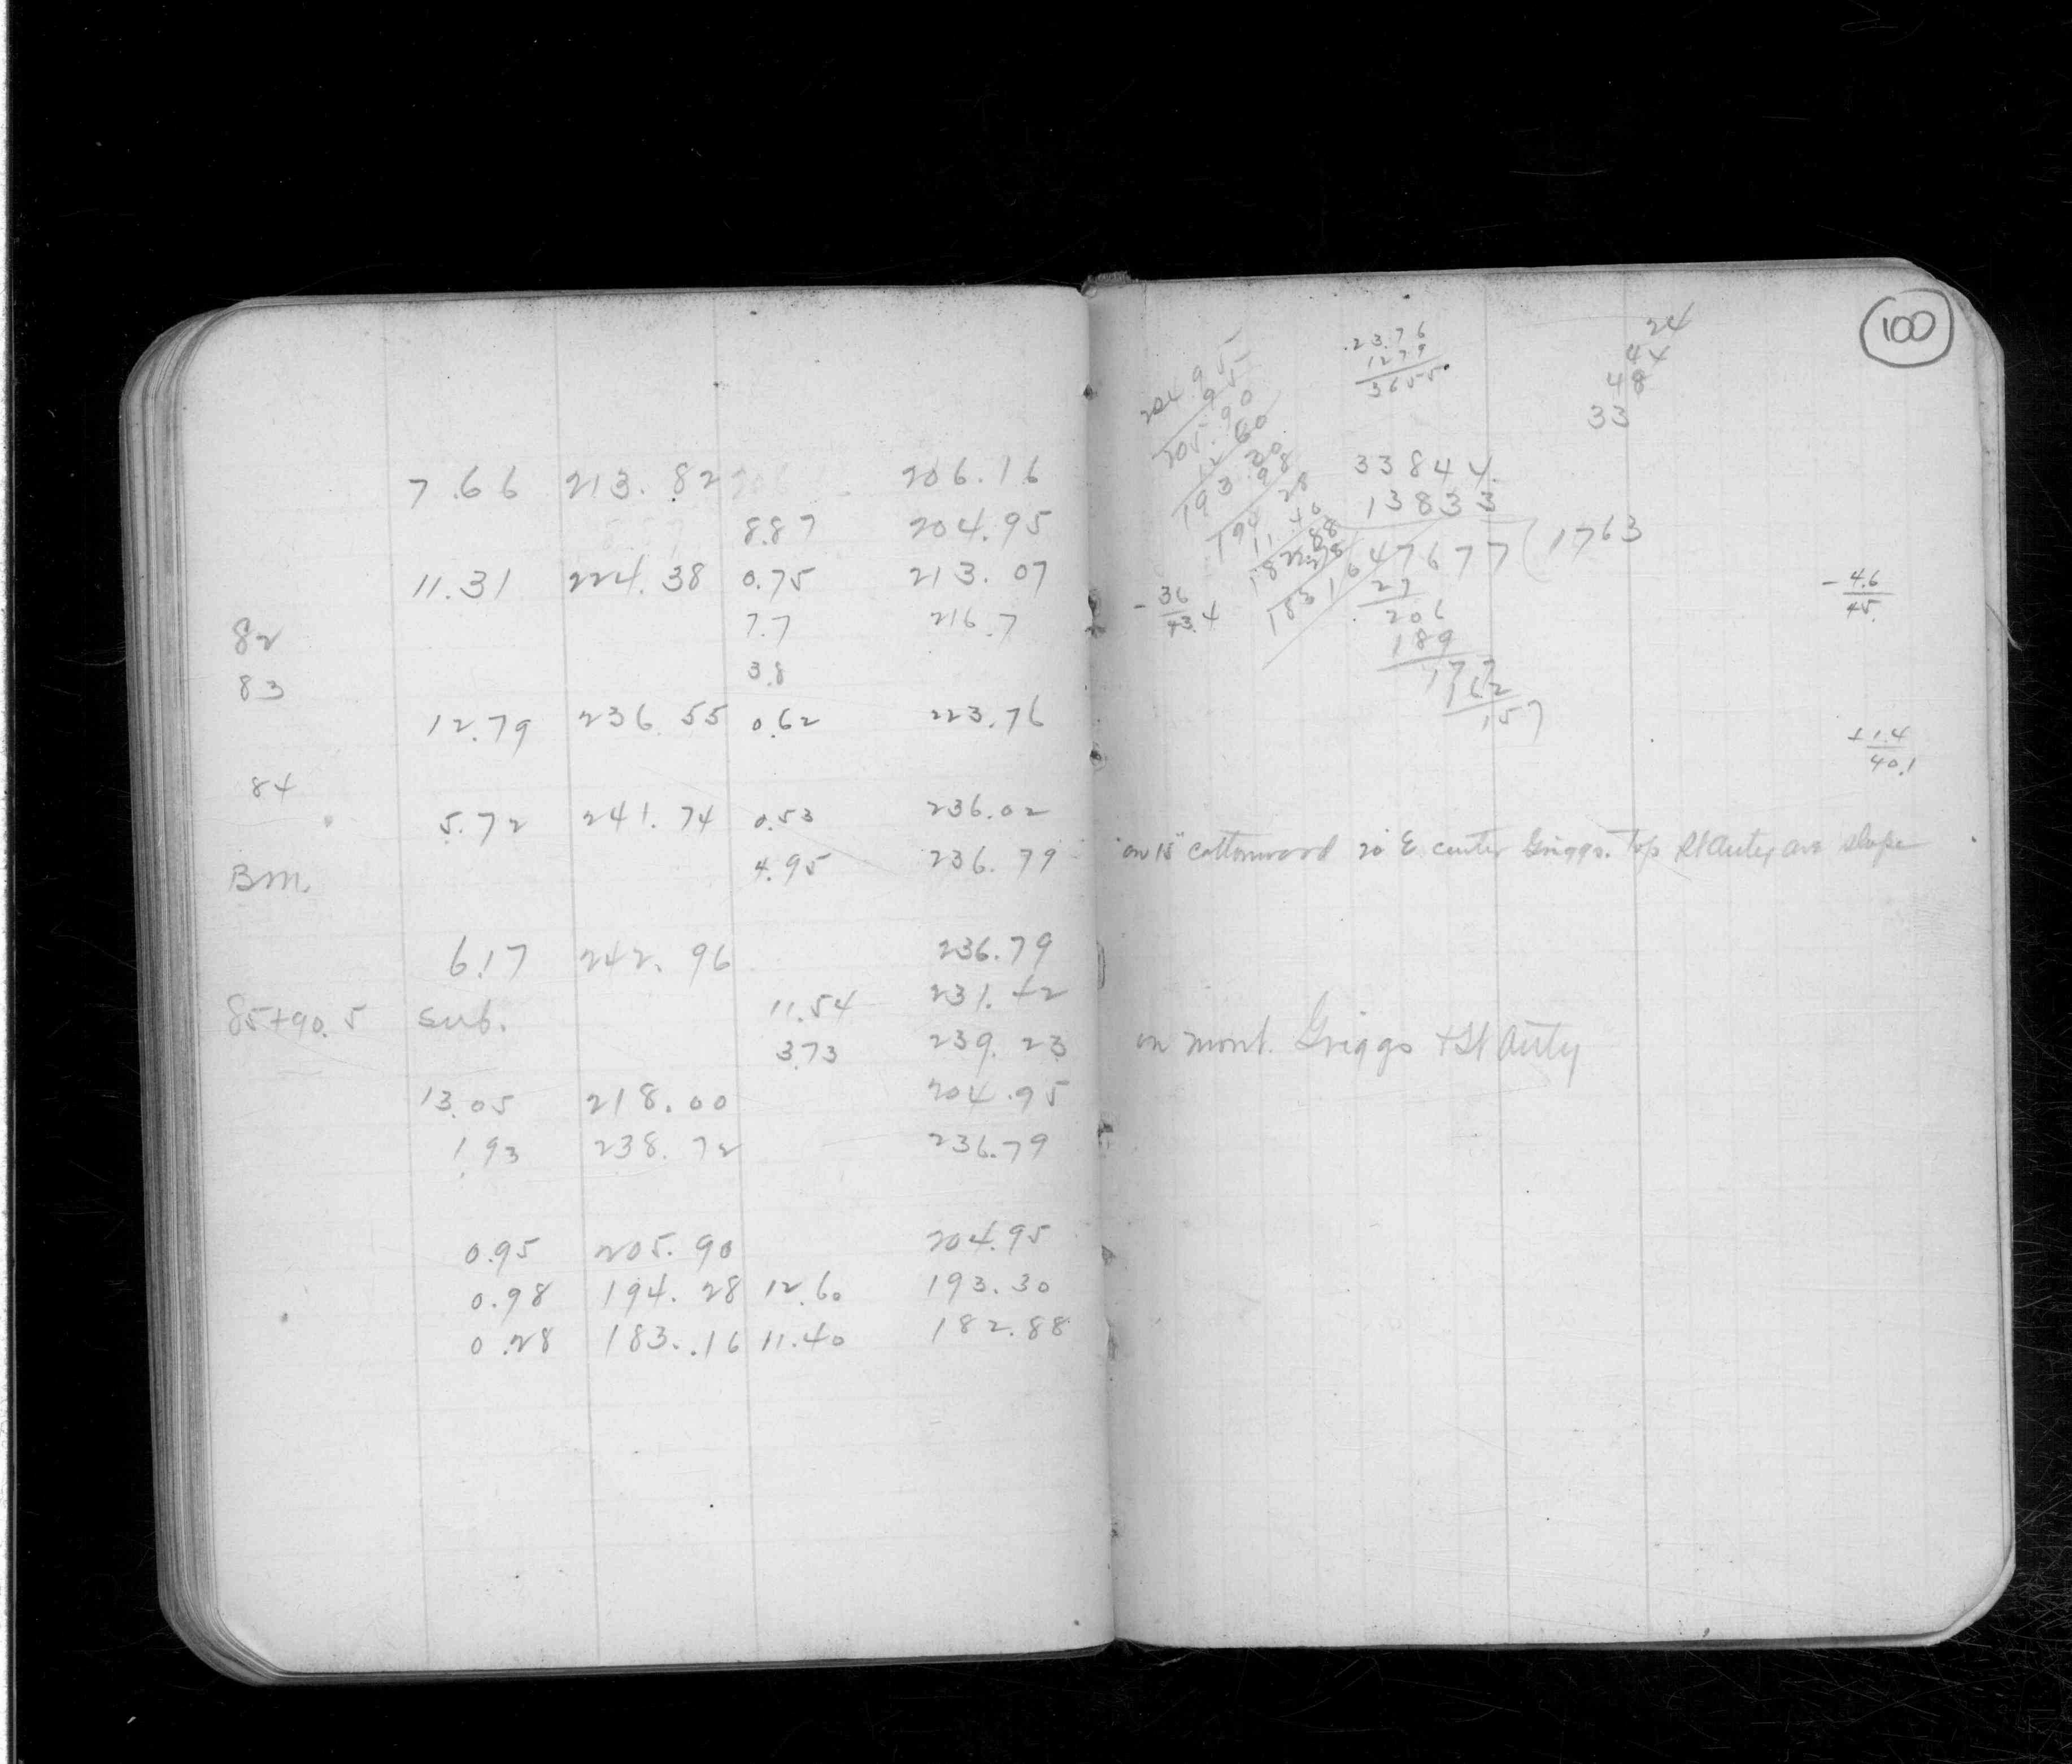 7.66 213.82 206.16
8.87 204.95
11.31 224.38 0.75 213.07
82 7.7 216.7
83 3.8
12.79 236.55 0.62 223.76
84
5.72 241.74 0.53 236.02
Bm. 4.95 236.79
6.17 242.96 236.79
85+90.5 sub. 11.54 231.42
3.73 239.23
13.05 218.00 204.95
1.93 238.72 236.79
0.95 205.90 204.95
0.98 194.28 12.60 193.30
0.28 183.16 11.40 182.88
100
204.95
.95
205.90
12.60
193.30
.98
194.28
11.40
182.88
.28
183.16
.23.76
1279
3655
24
44
48
33
33844
13833
47677 (1763
27
206
189
177
162
157
- 36
43.4
- 4.6
45.
+ 1.4
40.1
on 15" cottonwood 20' E center Griggs. Top St Anty ave slope
on mont. Griggs + St Anty